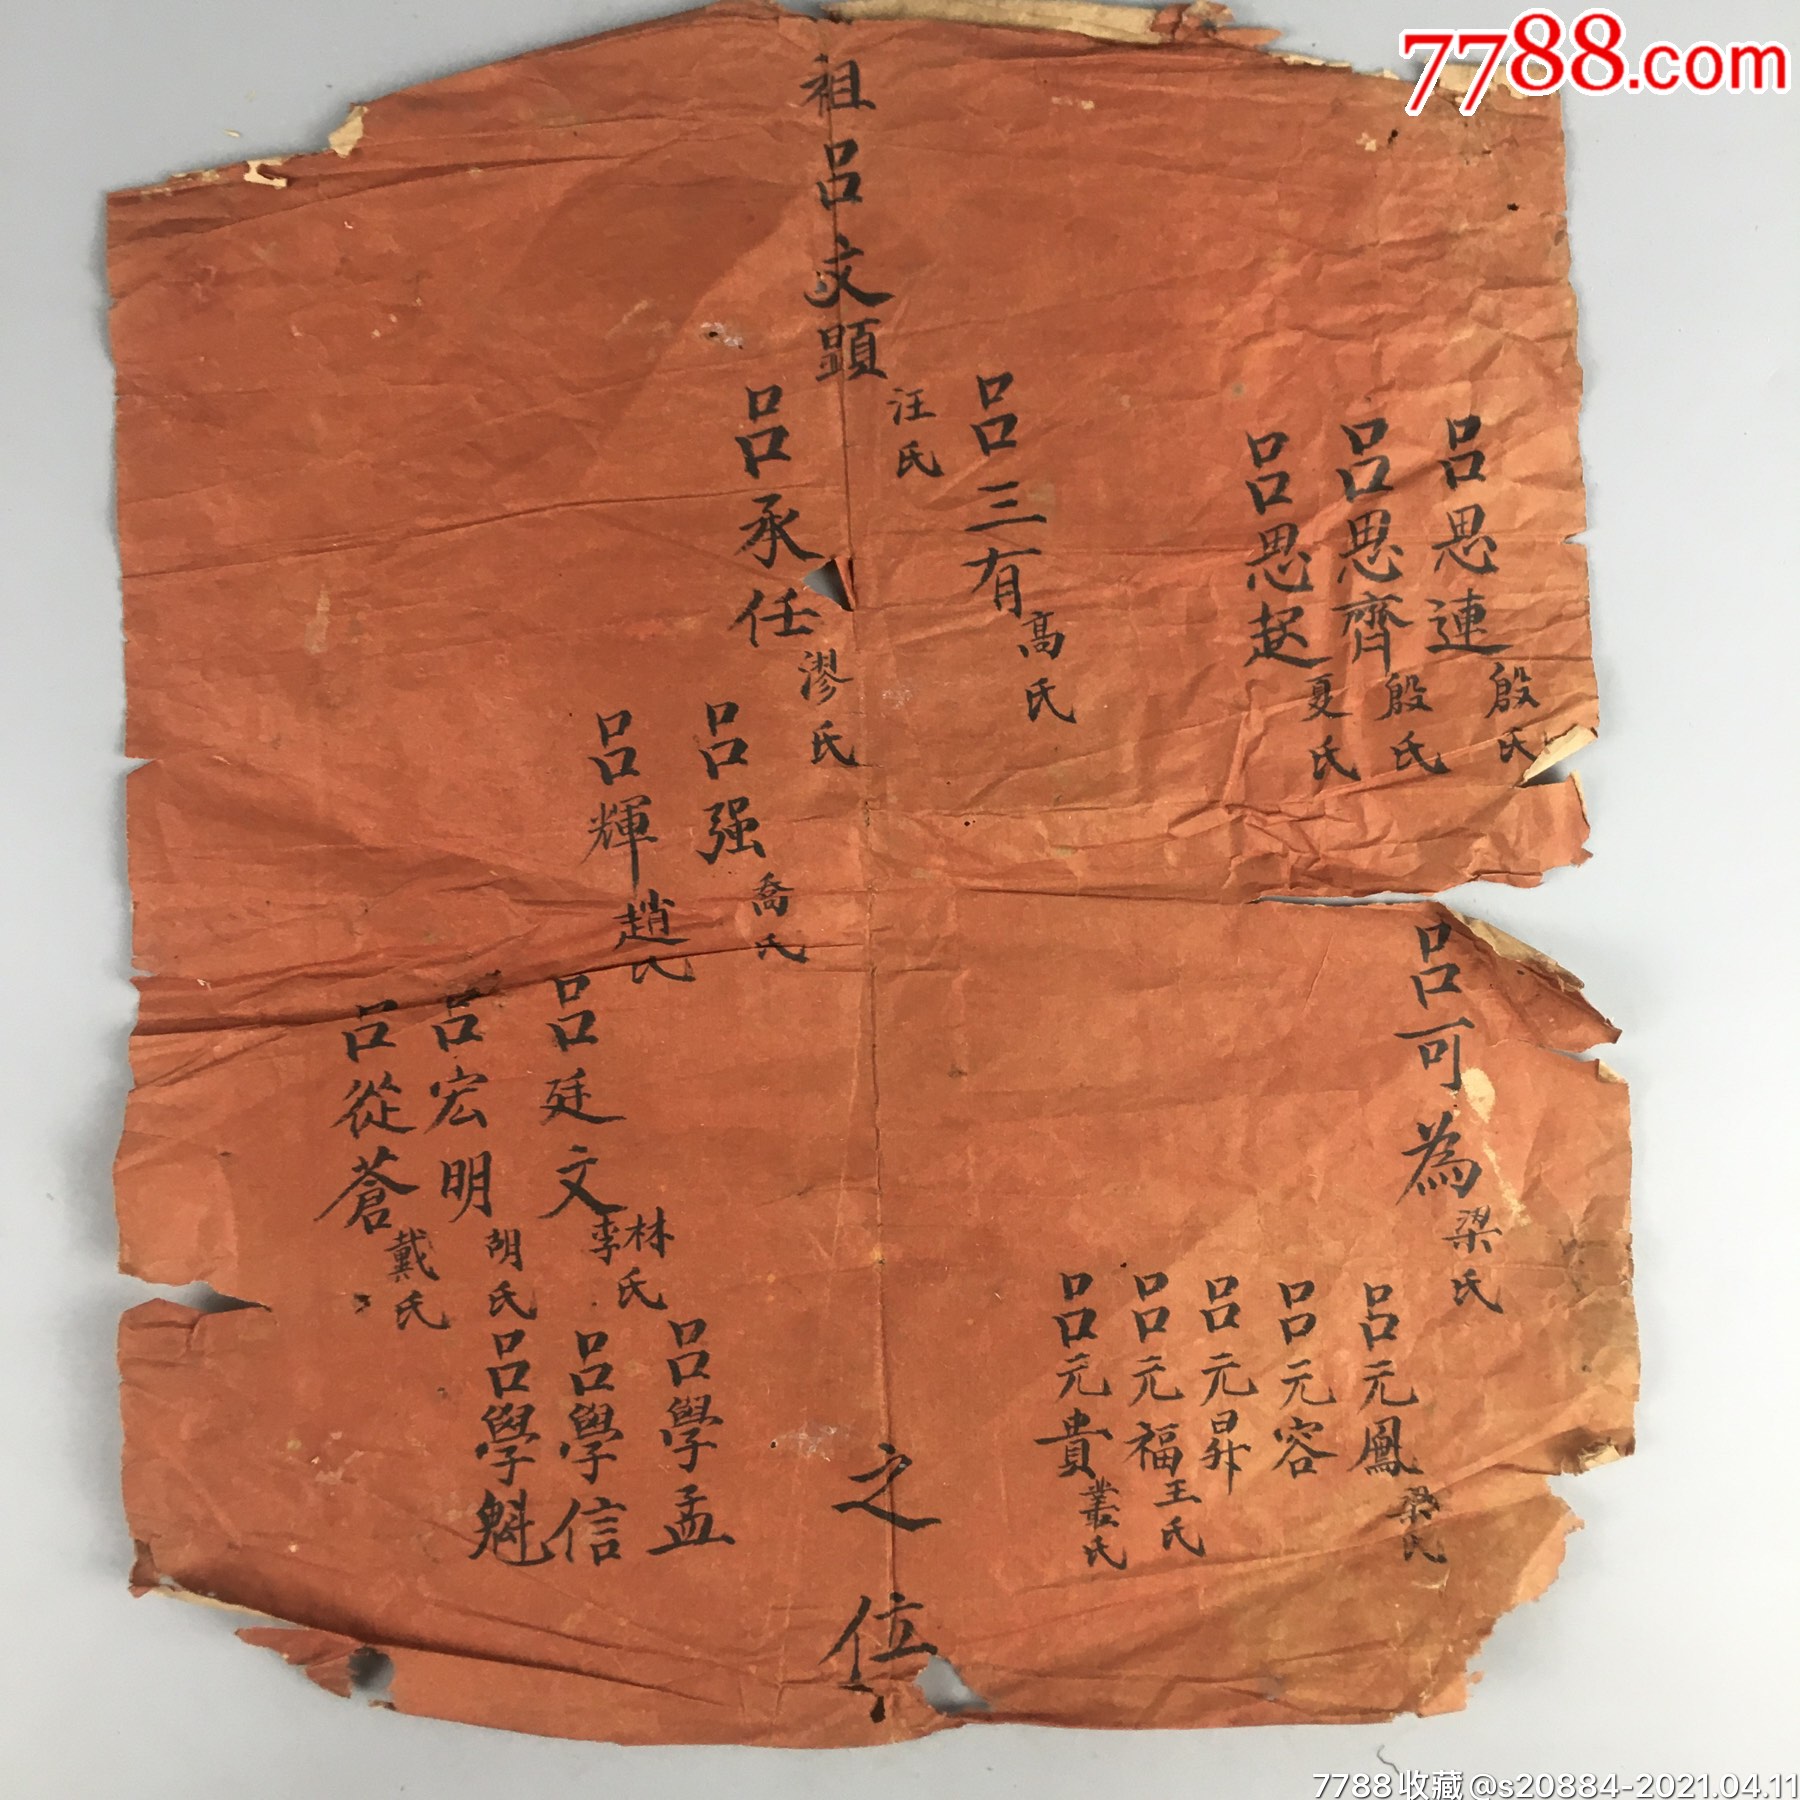 7788.com
祖呂文顯
汪氏
呂三有
高氏
呂思連
殷氏
呂思齊
殷氏
呂思起
夏氏
呂承任
漻氏
呂强
喬氏
呂輝
趙氏
呂可為
梁氏
呂廷文
林氏
李
呂宏明
胡氏
呂從蒼
戴氏
呂元鳳
梁氏
呂元容
呂元昇
呂元福
王氏
呂元貴
叢氏
呂學孟
呂學信
呂學魁
之位
7788收藏@s20884-2021.04.11